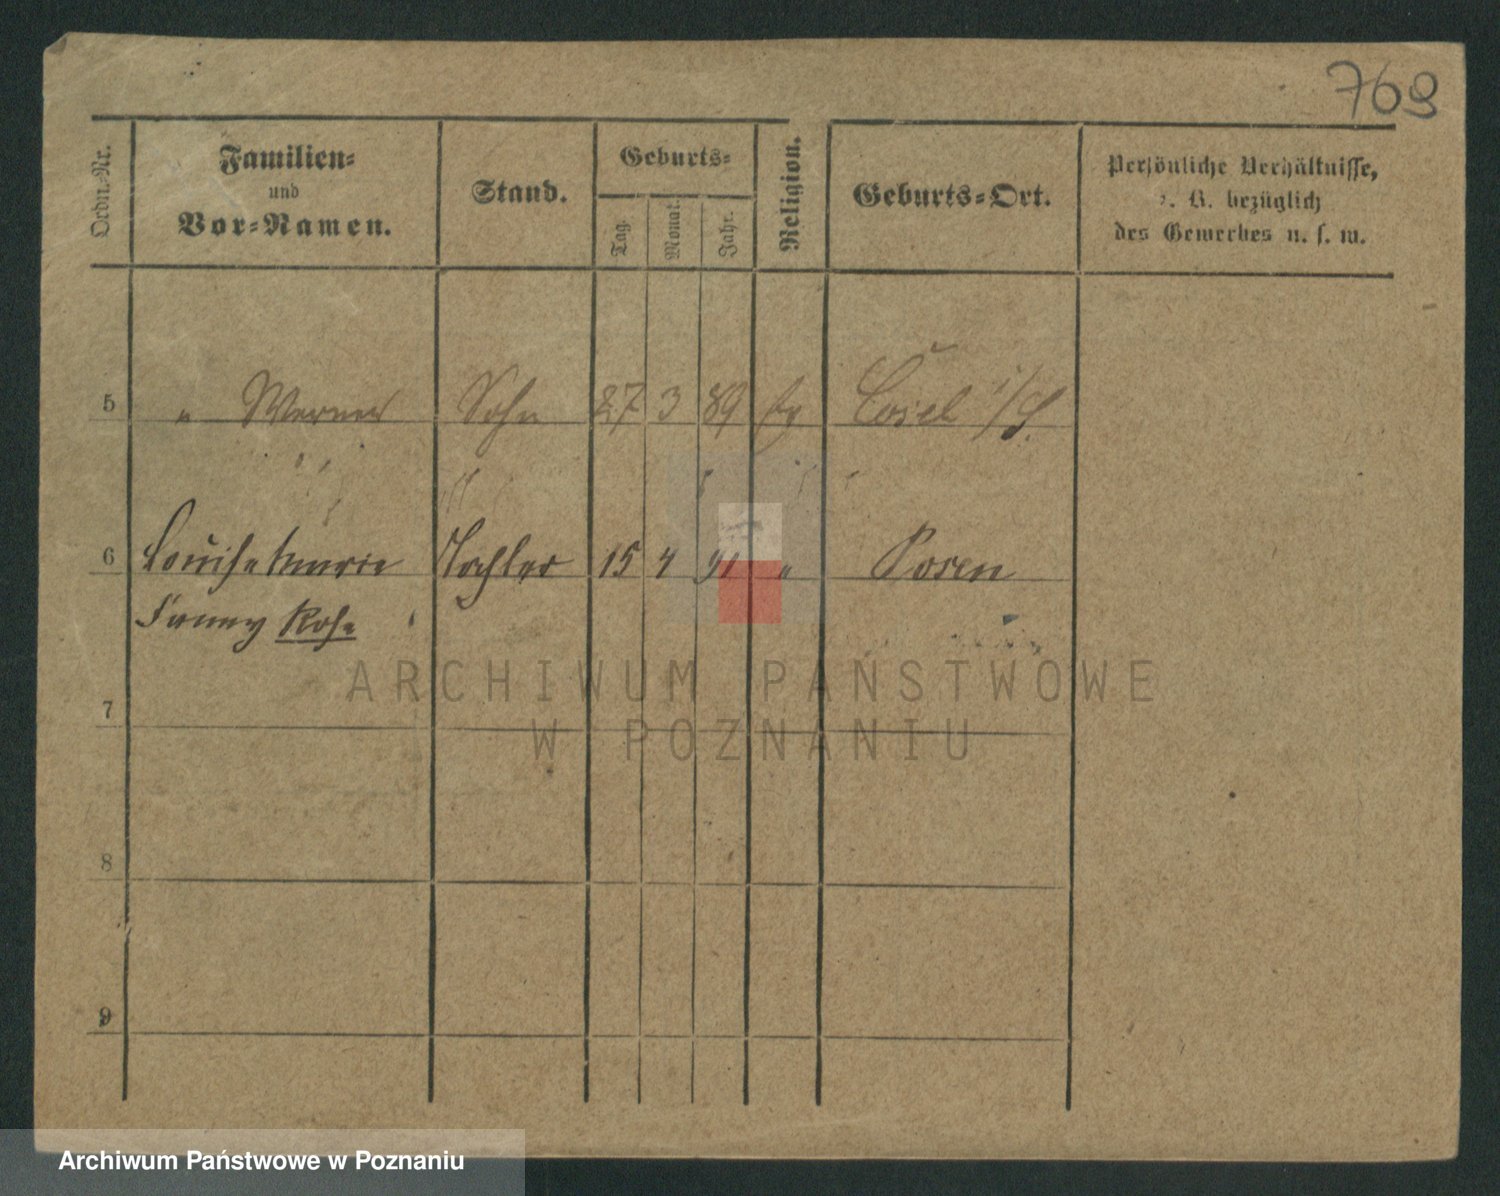 769
Ordn.-Nr.
Familien-
und
Vor-Namen.
Stand.
Geburts-
Tag.
Monat.
Jahr.
Religion.
Geburts-Ort.
Persönliche Verhältnisse,
z. B. bezüglich
des Gewerbes u. s. w.
5 " Werner Sohn 27 3 89 ev Cosel i/S.
6 Louise Marie Tochter 15 4 91 " Posen
Fanny Rose
7
8
9
ARCHIWUM PAŃSTWOWE
W POZNANIU
Archiwum Państwowe w Poznaniu